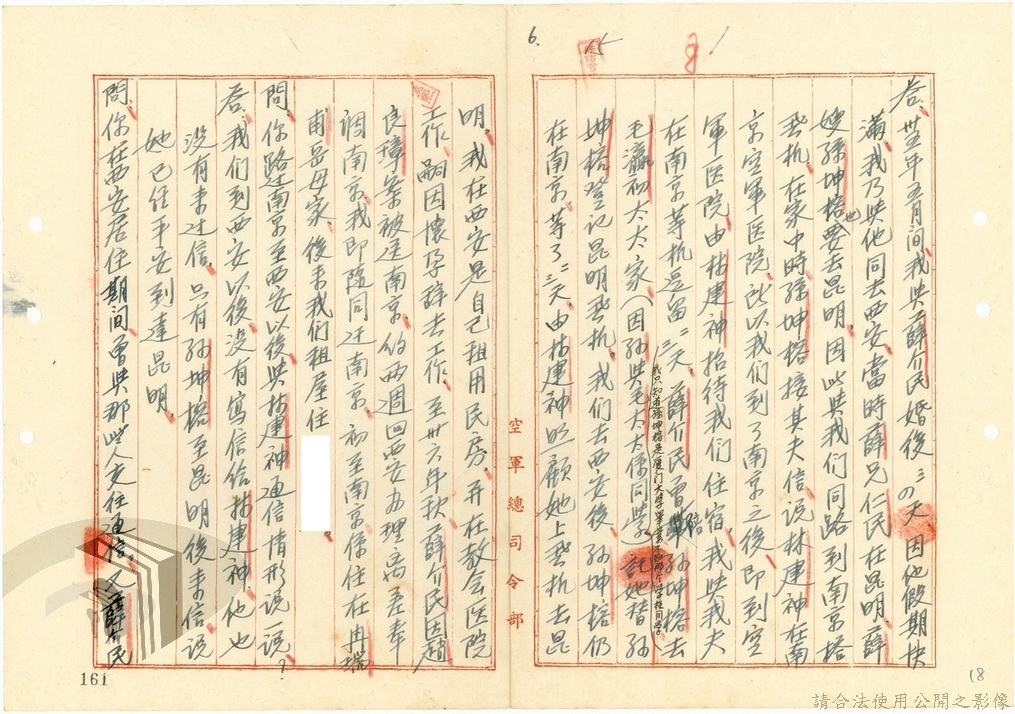 6.
答、卅五年五月間、我與薛介民婚後三四天因他假期快
滿、我乃與他同去西安、當時薛兄仁民在昆明、薛
嫂孫坤榕也要去昆明、因此與我們同路到南京搭
飛机、在家中時孫坤榕接其夫信、說林建神在南
京空軍医院、所以我們到了南京之後、即到空
軍医院、由林建神招待我們住宿、我與我夫
在南京等机逗留二三天、薛介民曾陪孫坤榕去
毛瀛初太太家（因孫與毛太太係同學）託她替孫
我只知道孫坤榕是厦门大學畢業
坤榕登记昆明飛机、我们去西安後、孫坤榕仍
在南京等了二三天、由林建神照顧她上飛机去昆
空軍總司令部
明、我在西安是自己租用民房、并在教会医院
工作、嗣因懷孕辞去工作、至卅六年秋、薛介民因趙
良璋案被送南京、約两週回西安办理离差奉
調南京、我即随同迁南京、初至南京係住在冉瑞
甫岳母家、後来我们租屋住
問、你路过南京至西安以後、與林建神通信情形說一說？
答、我们到西安以後、没有寫信给林建神、他也
没有来过信、只有孙坤榕至昆明後来信、説
她已经平安到達昆明、
問、你在西安居住期间、曾與那些人交往通信、又薛介民
161
18
請合法使用公開之影像